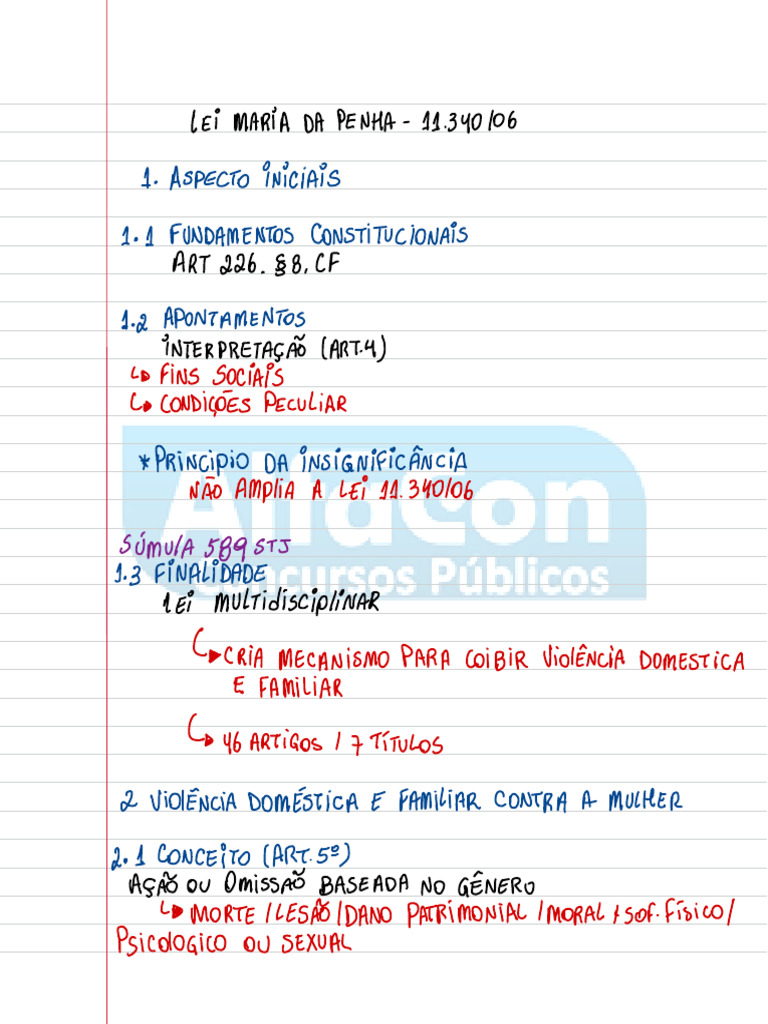 LEI MARIA DA PENHA - 11.340/06
1. ASPECTO INICIAIS
1.1 FUNDAMENTOS CONSTITUCIONAIS
ART 226. §8, CF
1.2 APONTAMENTOS
INTERPRETAÇÃO (ART.4)
↳ FINS SOCIAIS
↳ CONDIÇÕES PECULIAR
* PRINCIPIO DA INSIGNIFICÂNCIA
NÃO AMPLIA A LEI 11.340/06
AlfaCon
SÚMULA 589 STJ
Concursos Públicos
1.3 FINALIDADE
LEI MULTIDISCIPLINAR
↳ CRIA MECANISMO PARA COIBIR VIOLÊNCIA DOMESTICA
E FAMILIAR
↳ 46 ARTIGOS / 7 TÍTULOS
2 VIOLÊNCIA DOMÉSTICA E FAMILIAR CONTRA A MULHER
2.1 CONCEITO (ART.5º)
AÇÃO OU OMISSÃO BASEADA NO GÊNERO
↳ MORTE / LESÃO / DANO PATRIMONIAL / MORAL + SOF. FÍSICO /
PSICOLOGICO OU SEXUAL